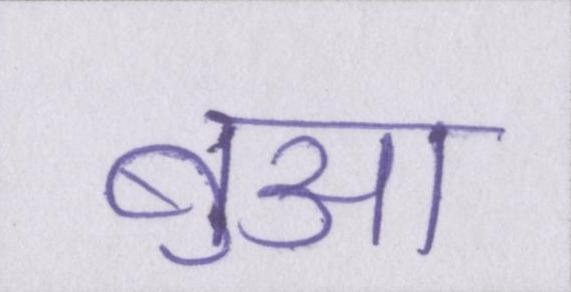 बुआ